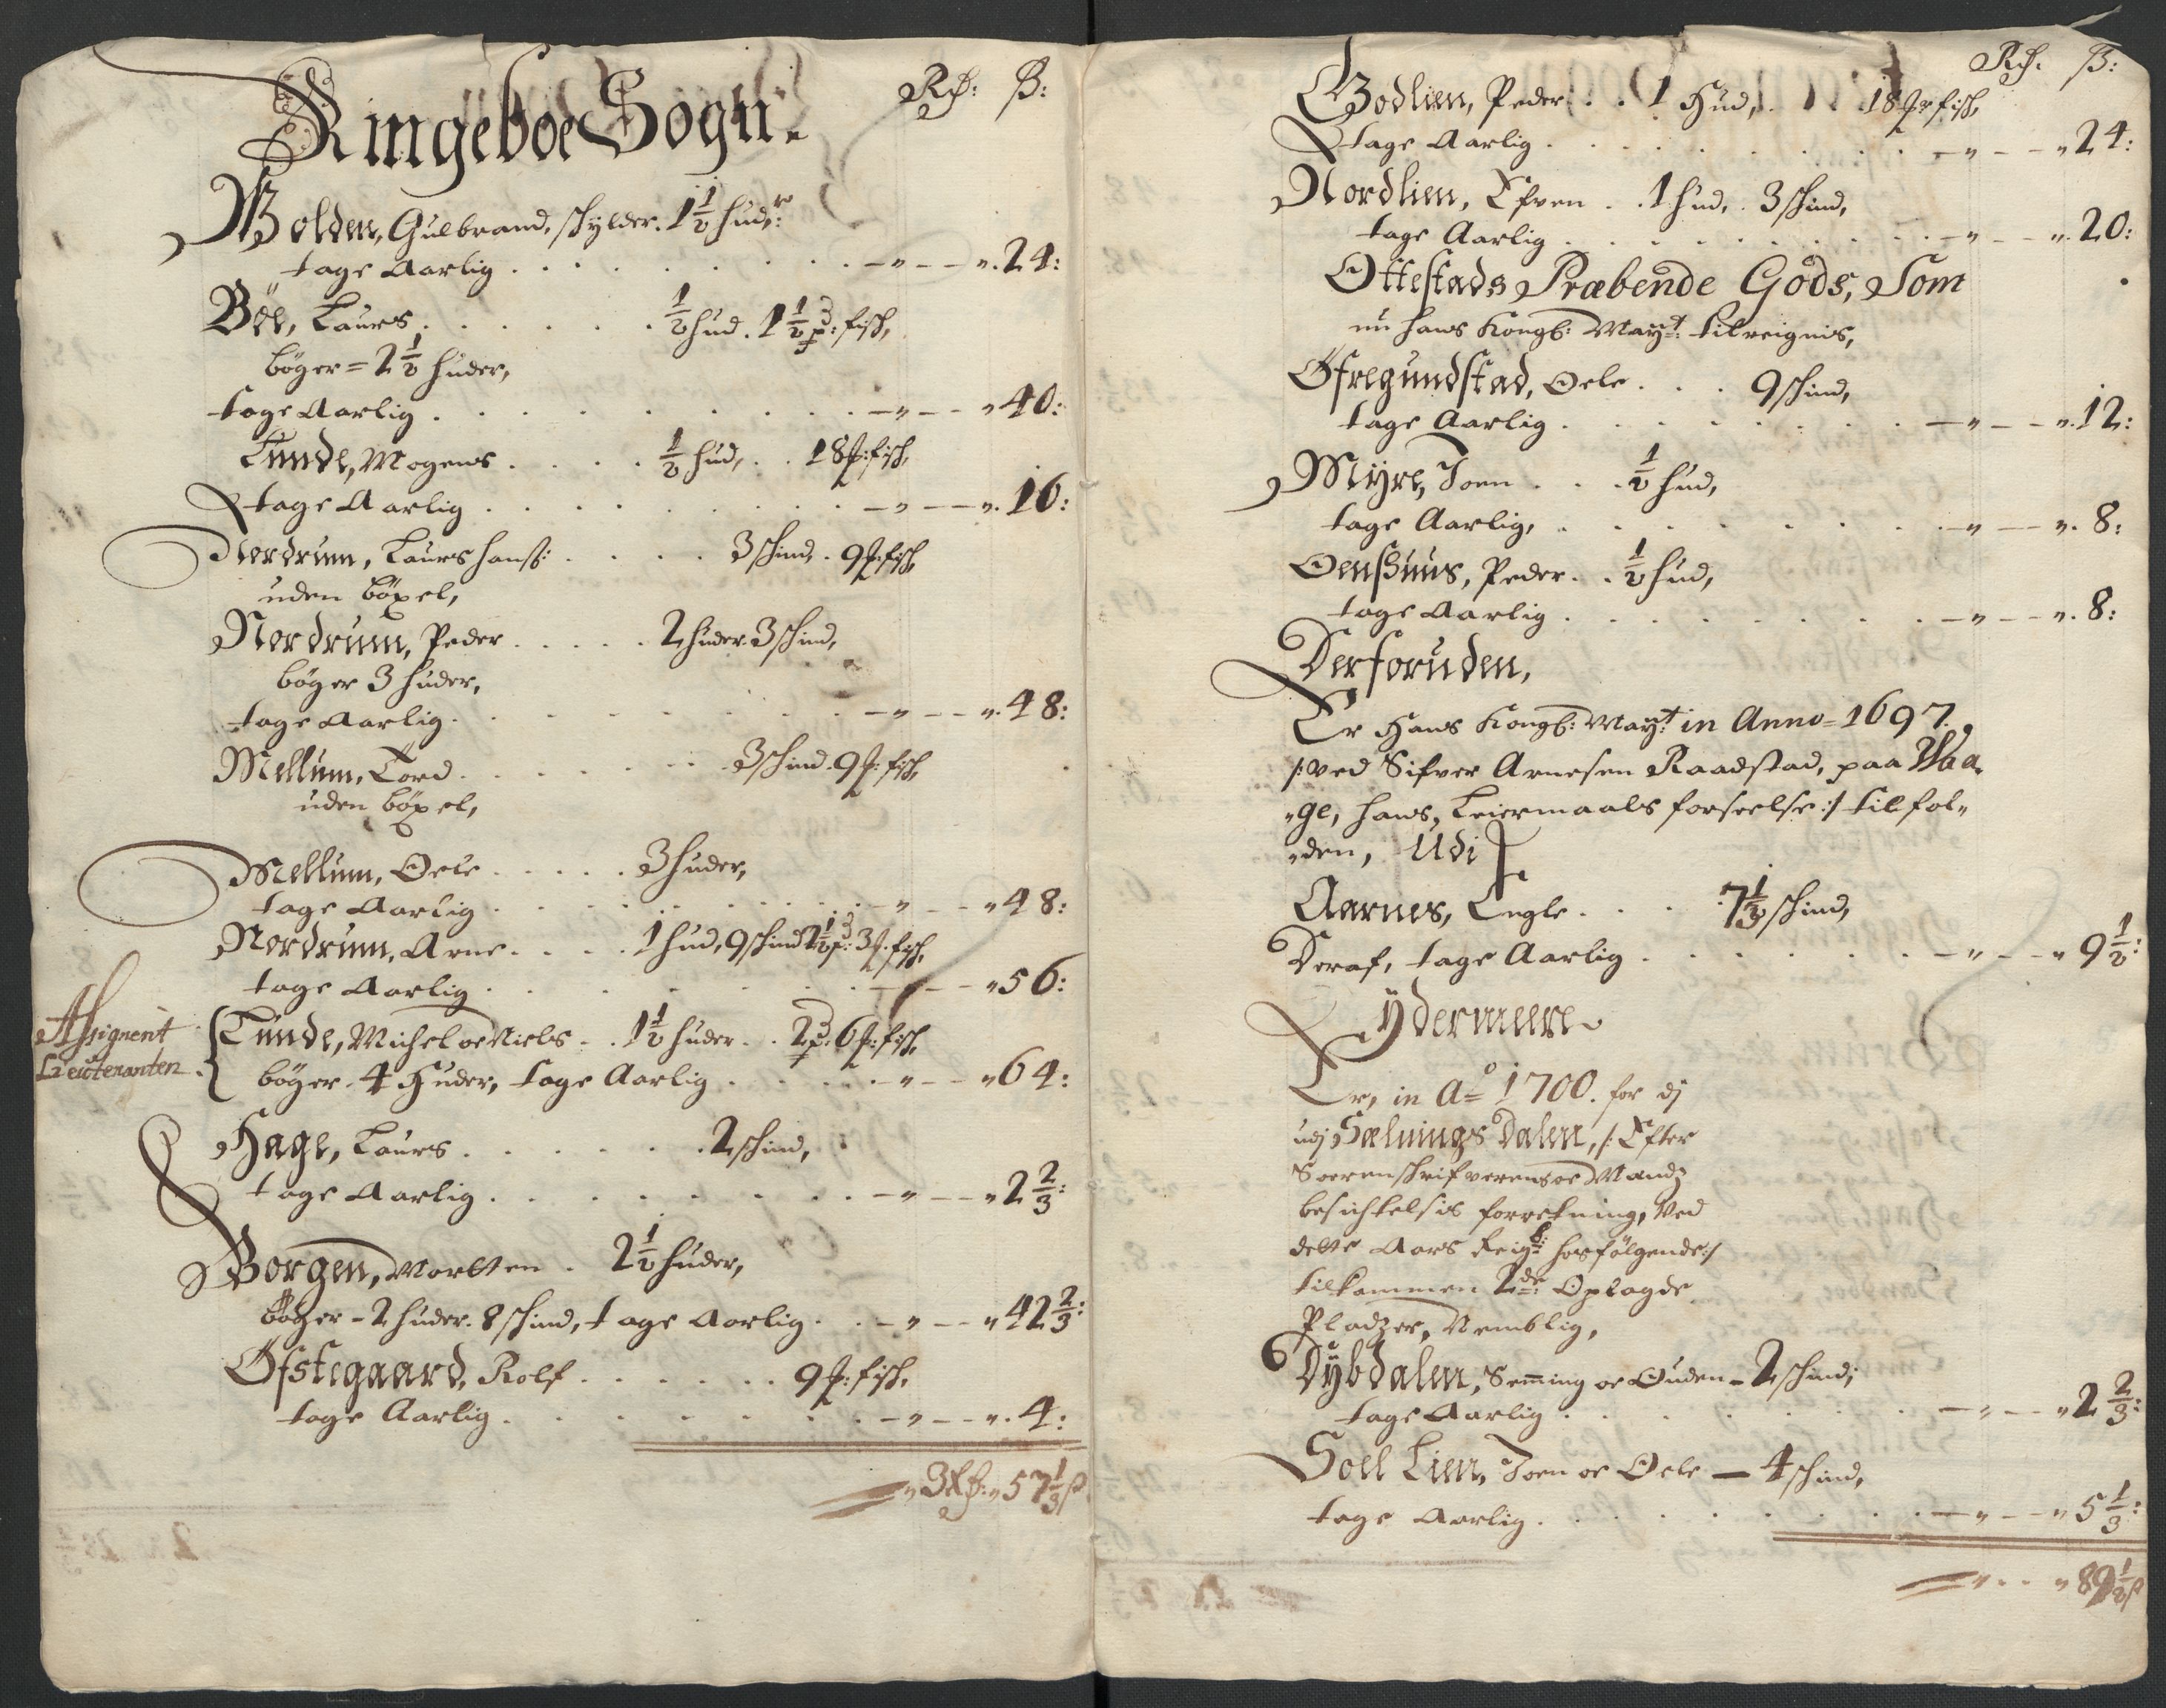 Ringeboe Sogn. Rdr: ß:
Volden, Gulbrand, skylder. 1½ hud,
tage Aarlig . . . . . . . — „ — — „ 24:
Böe, Laurs . . . . . ½ hud. 1½ ℔: fisk,
böger = 2½ huder,
tage Aarlig . . . . . . . — „ — — „ 40:
Lunde, Mogens . . . . ½ hud, . . 18 ℔: fisk,
tage Aarlig . . . . . . . — „ — — „. 16:
Nerdrum, Laurs hanß: . . . . 3 skind, . 9 ℔: fisk,
uden böxel,
Nordrum, Peder . . . . . 2 huder. 3 skind,
böger 3 huder,
tage Aarlig . . . . . . . — „ — — „. 48:
Mellum, Tord . . . . . . . 3 skind. 9 ℔: fisk,
uden böxel,
Mellum, Oele . . . . . 3 huder,
tage Aarlig . . . . . . . — „ — — „ 48:
Nordrum, Arne . . . . 1 hud, 9 skind 3 ℔. fisk,
tage Aarlig . . . . . . . — — „ 56:
Assignerit
Lieutenanten
Tunde, Michel oc Niels . . 1½ huder . . 2 6 ℔: fisk,
böger. 4 Huder, tage Aarlig . . . . . — „ — — „ 64:
Hage, Laurs . . . . . . 2 skind,
tage Aarlig . . . . . . . — „ — — „ 2⅔:
Borgen, Morten . 2½ huder,
böger - 2 huder. 8 skind, tage Aarlig . . — „ — — „ 42⅔:
Ofstegaard, Rolf . . . . . . 9 ℔: fisk,
tage Aarlig . . . . . . . — „ — — „. 4:
„ 3 Rdr: „ 57⅓ ß
Rdr. ß:
Bodlien, Peder . . 1 Hud, . . . 18 ℔r fisk,
tage Aarlig . . . . . . . — „ — — „ 24:
Nordlien, Efven . . 1 hud, . 3 skind,
tage Aarlig . . . . . . . — „ — — „. 20:
Ottestads Præbende Gods, Som
nu hans Kongl: Mayt: tilreignis,
Ofregundstad, Oele . . . 9 skind,
tage Aarlig . . . . . . . — „ — — „. 12:
Myre, Joen . . . ½ hud,
tage Aarlig, . . . . . . . — „ — — „. 8:
Oenshuus, Peder . . ½ hud,
tage Aarlig . . . . . . . — „ — — „. 8:
Derforuden,
Er Hans Kongl: Mayt: in Anno = 1697.
/: ved Sifver Arnesen Raadstad, paa Waa„
„ge, hans, Leiermaals forseelse :/ tilfal„
„den, Udi
Aarnes, Engle . . . 7½ skind,
Deraf, tage Aarlig . . . . . . — „ — — „ 9½:
Ydermeere
Er, in Ao = 1700. for dj
udj Sælnings Dalen, /: Efter
Soerenskrifverens oc Mandz
besichtelsis forretning, Ved
dette Aars Regn: hosfölgende :/
tilkommen 2de: Oplagde
Pladzer, Nemblig,
Dybdalen, Semming oc Ouden - 2 skind,
tage Aarlig . . . . . . . — „ — — „ 2⅔:
Soel Lien, Joen oc Oele — 4 skind,
tage Aarlig . . . . . . . — „ — — „ 5⅓:
„ . . „ 89½ ß